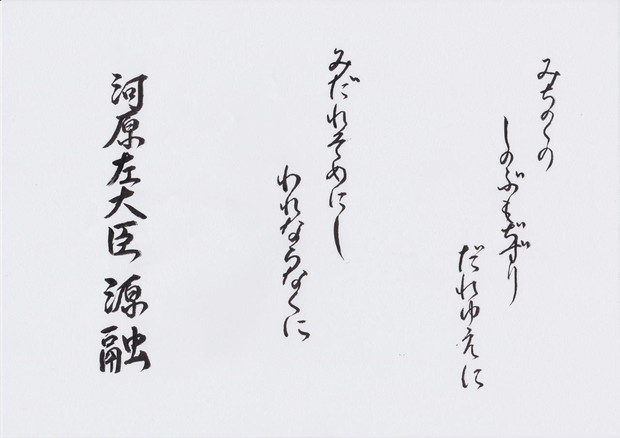 みちのくの
しのぶもぢずり
だれゆゑに
みだれそめにし
われならなくに
河原左大臣 源融